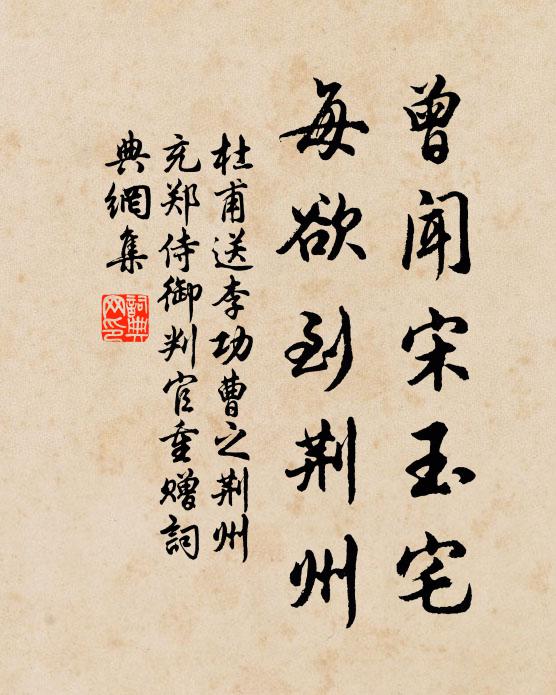 曾闻宋玉宅
每欲到荆州
杜甫送李功曹之荆州
充郑侍御判官重赠詞
典網集
詞典网印